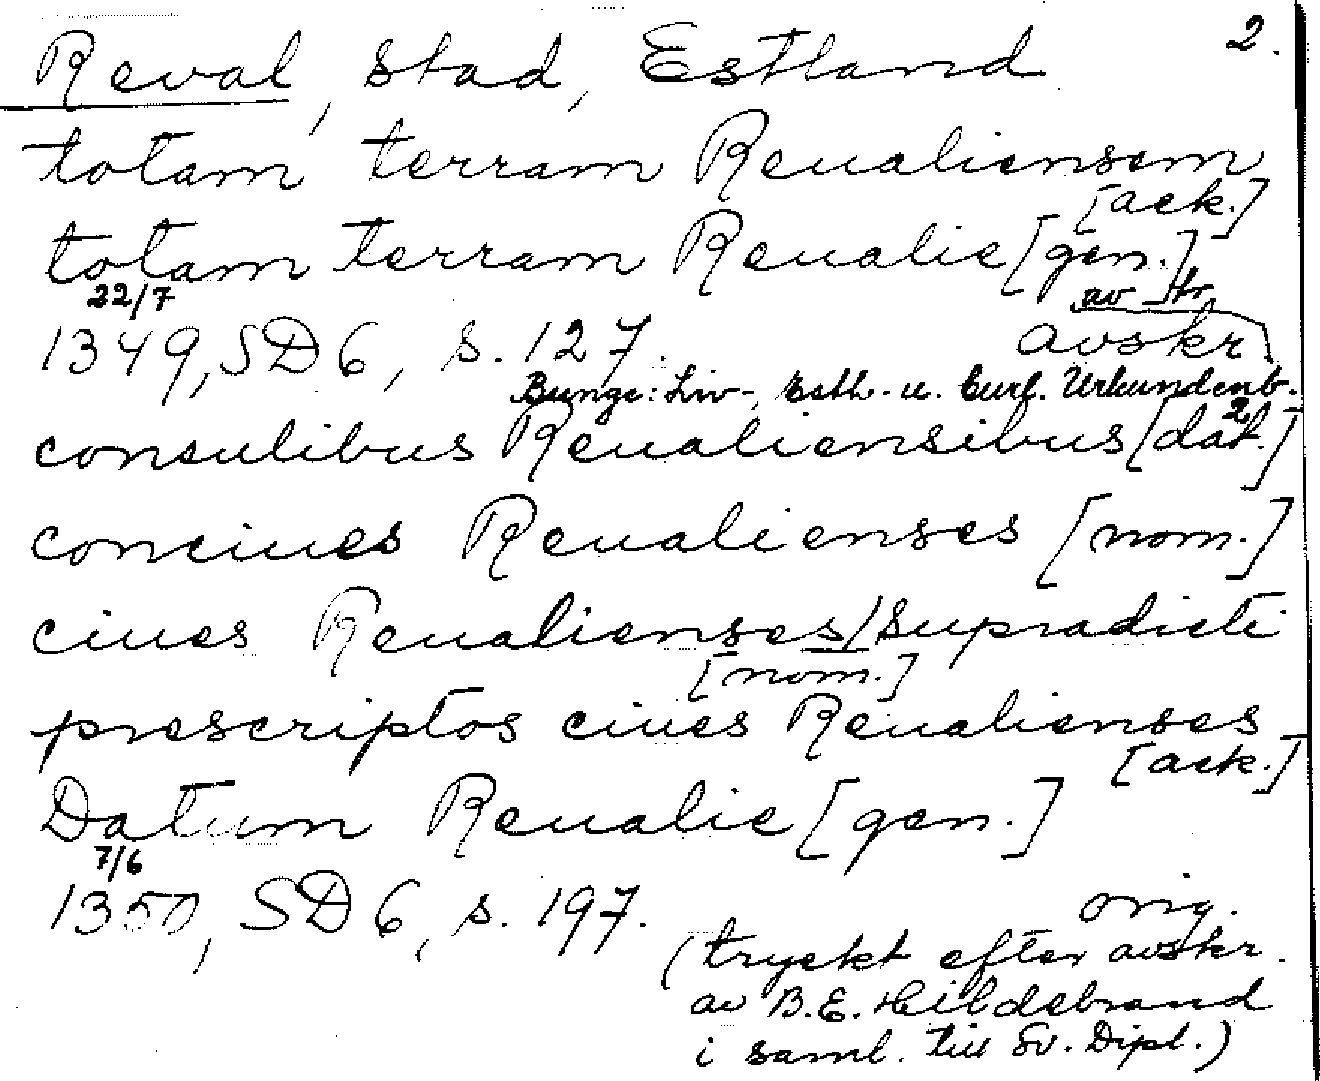 2.
Reval, stad, Estland
totam terram Reualiensem
[ack.]
totam terram Reualie [gen.]
22/7
av tr.
1349, SD 6, s. 127. avskr.
Bunge: Liv-, Esth- u. Curl. Urkundenb. 2
consulibus Reualiensibus [dat.]
conciues Reualienses [nom.]
ciues Reualienses/supradicti
[nom.]
prescriptos ciues Reualienses
[ack.]
Datum Reualie [gen.]
7/6
1350, SD 6, s. 197. orig.
(tryckt efter avskr.
av B.E. Hildebrand
i saml. till Sv. Dipl.)